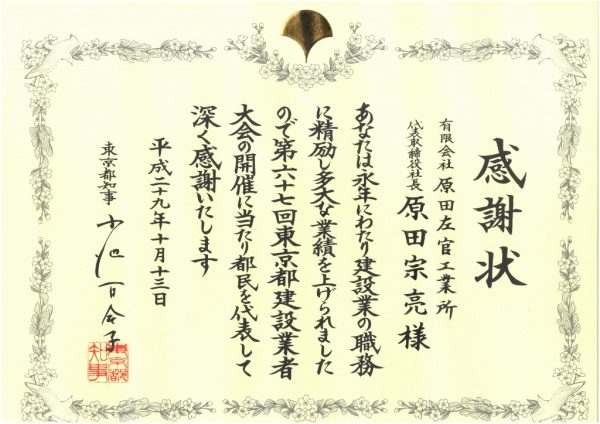 感謝状
有限会社 原田左官工業所
代表取締役社長 原田宗亮様
あなたは永年にわたり建設業の職務
に精励し多大な業績を上げられました
ので第六十七回東京都建設業者
大会の開催に当たり都民を代表して
深く感謝いたします
平成二十九年十月十三日
東京都知事 小池百合子
東京都
知事